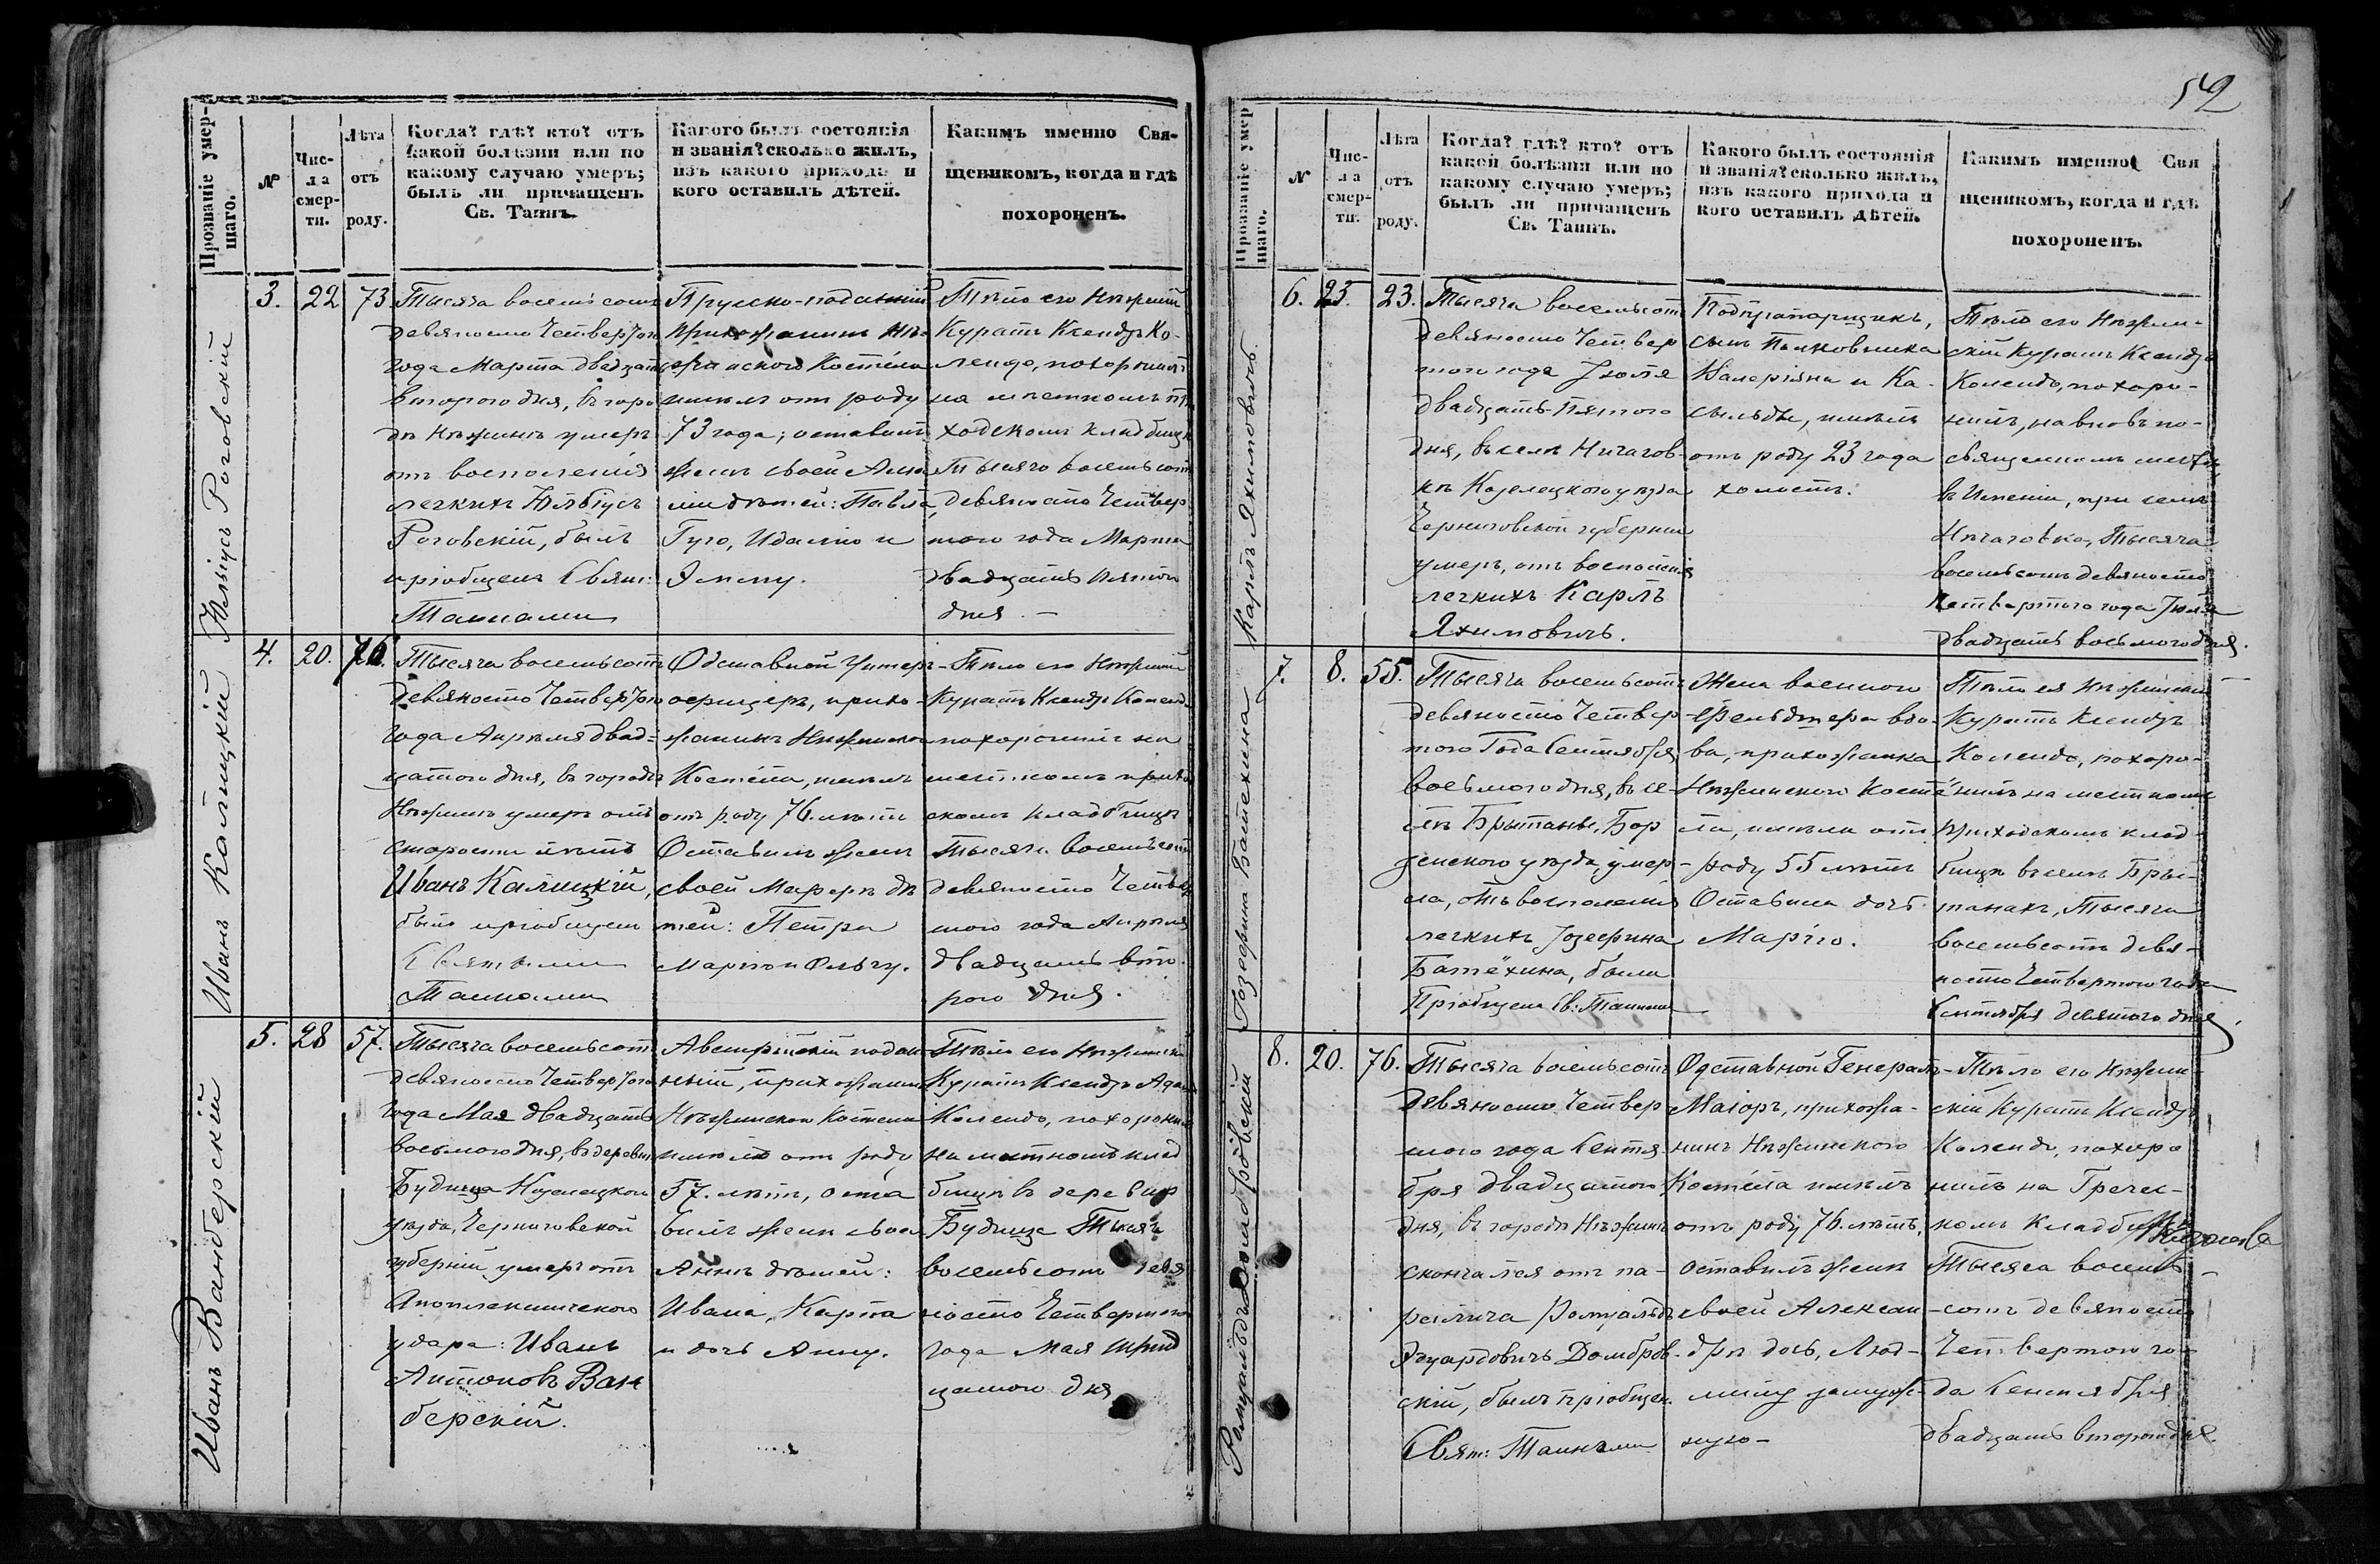 Прозваніе умер-
шаго.
№
Чис-
ла
смер-
ти.
Лѣта
отъ
роду.
Когда? гдѣ? кто? отъ
какой болѣзни или по
какому случаю умеръ;
былъ ли причащенъ
Св. Таинъ.
Какого былъ состоянія
и званія? сколько жилъ,
изъ какого прихода и
кого оставилъ дѣтей.
Какимъ именно Свя-
щенникомъ, когда и гдѣ
похороненъ.
Роговскій
3.
22
73
Тысяча восемьсотъ
девяносто Четвертого
года Марта двадцать
второго дня, въ горо
дѣ Нѣжинѣ умеръ
отъ воспаленія
легкихъ
Роговскій, былъ
пріобщенъ Свят:
Тайнами
Прусско-подданный
прихожанинъ Нѣ-
жинскаго Костёла
имѣлъ отъ роду
73 года; оставилъ
женѣ своей
дѣтей: Павла,
Гуго, Идалію и
Эмму.
Тѣло его Нѣжинскій
Куратъ Ксендзъ Ко-
лендо, похоронилъ
на мѣстномъ при
ходскомъ кладбищѣ
Тысяча восемьсотъ
девяносто Четвер
того года Марта
двадцать пятого
дня. —
Иванъ Калицкій
4.
20.
76.
Тысяча восемьсотъ
девяносто Четвертого
года Апрѣля двад=
цатого дня, въ городѣ
Нѣжинѣ умеръ отъ
старости лѣтъ
Иванъ Калицкій,
былъ пріобщенъ
Святыми
Тайнами
Одставной Унтеръ-
офицеръ, прихо-
жанинъ Нѣжинского
Костёла, имѣлъ
отъ роду 76 лѣтъ
Оставилъ женѣ
своей Марьи дѣ
тей: Петра
Марію и Ольгу.
Тѣло его Нѣжинскій
Куратъ Ксендзъ Колендо
похоронилъ на
мѣстномъ приход
скомъ кладбищѣ
Тысяча восемьсотъ
девяносто Четвер
того года Апрѣля
двадцать вто
рого дня.
Иванъ Ванберскій
5.
28
57.
Тысяча восемьсотъ
девяносто Четвертого
года Мая двадцать
восьмого дня, въ деревни
Будища Козелецкого
уѣзда, Черниговской
губерніи умеръ отъ
Апоплексического
удара: Иванъ
Антоновъ Ван
берскій.
Австрійскій поддан
ный, прихожанинъ
Нѣжинского Костёла
имѣлъ отъ роду
57. лѣтъ, оста
вилъ женѣ своей
Аннѣ дѣтей:
Ивана, Карла
и дочь Анну.
Тѣло его Нѣжинскій
Куратъ Ксендзъ Адамъ
Колендо, похоронилъ
на мѣстномъ клад
бищѣ въ деревнѣ
Будища Тысяча
восемьсотъ девя
носто Четвертого
года Мая трид
цатого дня
59
Прозваніе умер
шаго.
№
Чис-
ла
смер-
ти.
Лѣта
отъ
роду.
Когда? гдѣ? кто? отъ
какой болѣзни или по
какому случаю умеръ;
былъ ли причащенъ
Св. Таинъ.
Какого былъ состоянія
и званія? сколько жилъ,
изъ какого прихода и
кого оставилъ дѣтей.
Какимъ именно Свя
щенникомъ, когда и гдѣ
похороненъ.
Карлъ Яхимовичъ.
6.
25.
23.
Тысяча восемьсотъ
девяносто Четвер
того года Іюля
двадцать-пятого
дня, въ селѣ Ничагов-
кѣ Козелецкого уѣзда
Черниговской губерніи
умеръ, отъ воспаленія
легкихъ Карлъ
Яхимовичъ.
Подпрапорщикъ,
сынъ Полковника
Валеріяна и Ка-
сыльды, имѣлъ
отъ роду 23 года
холостъ.
Тѣло его Нѣжин-
скій Куратъ Ксендзъ
Колендо, похоро-
нилъ, на вновь по-
священномъ мѣстѣ
въ Имѣніи, при селѣ
Ничаговка, Тысяча
восемьсотъ девяносто
Четвертого года Іюля
двадцать восьмого дня.
Іозефина Батёхина
7.
8.
55.
Тысяча восемьсотъ
девяносто Четвер-
того Года Сентября
восьмого дня, въ се-
лѣ Брытаны, Бор
зенского уѣзда, умер-
ла, отъ воспаленія
легкихъ Іозефина
Батёхина, была
Пріобщена Св: Тайнами
Жена военного
Фельдшера вдо-
ва, прихожанка
Нѣжинского Костё
ла, имѣла отъ
роду 55 лѣтъ
Оставила дочь
Марію.
Тѣло ея Нѣжинскій
Куратъ Ксендзъ
Колендо, похоро-
нилъ на мѣстномъ
приходскомъ клад-
бищѣ въ селѣ Бры-
танахъ, Тысяча
восемьсотъ девя-
носто Четвертого года
Сентября девятого дня.
Ромуальдъ Домбровскій
8.
20.
76.
Тысяча восемьсотъ
девяносто Четвер
того года Сентя-
бря двадцатого
дня, въ городѣ Нѣжинѣ
скончался отъ па-
ралича Ромуальдъ
Эдуардовичъ Домбров-
скій, былъ пріобщен.
Свят: Тайнами
Одставной Генералъ-
Маіоръ, прихожа-
нинъ Нѣжинского
Костёла имѣлъ
отъ роду 76. лѣтъ,
оставилъ женѣ
своей Алексан-
дрѣ дочь, Люд-
милу замуж-
ную—
Тѣло его Нѣжин-
скій Куратъ Ксендзъ
Колендо, похоро
нилъ на Гречес-
комъ Кладбищѣ
Тысяча восемь-
сотъ девяносто
Четвертого го-
да Сентября
двадцать второго дня.